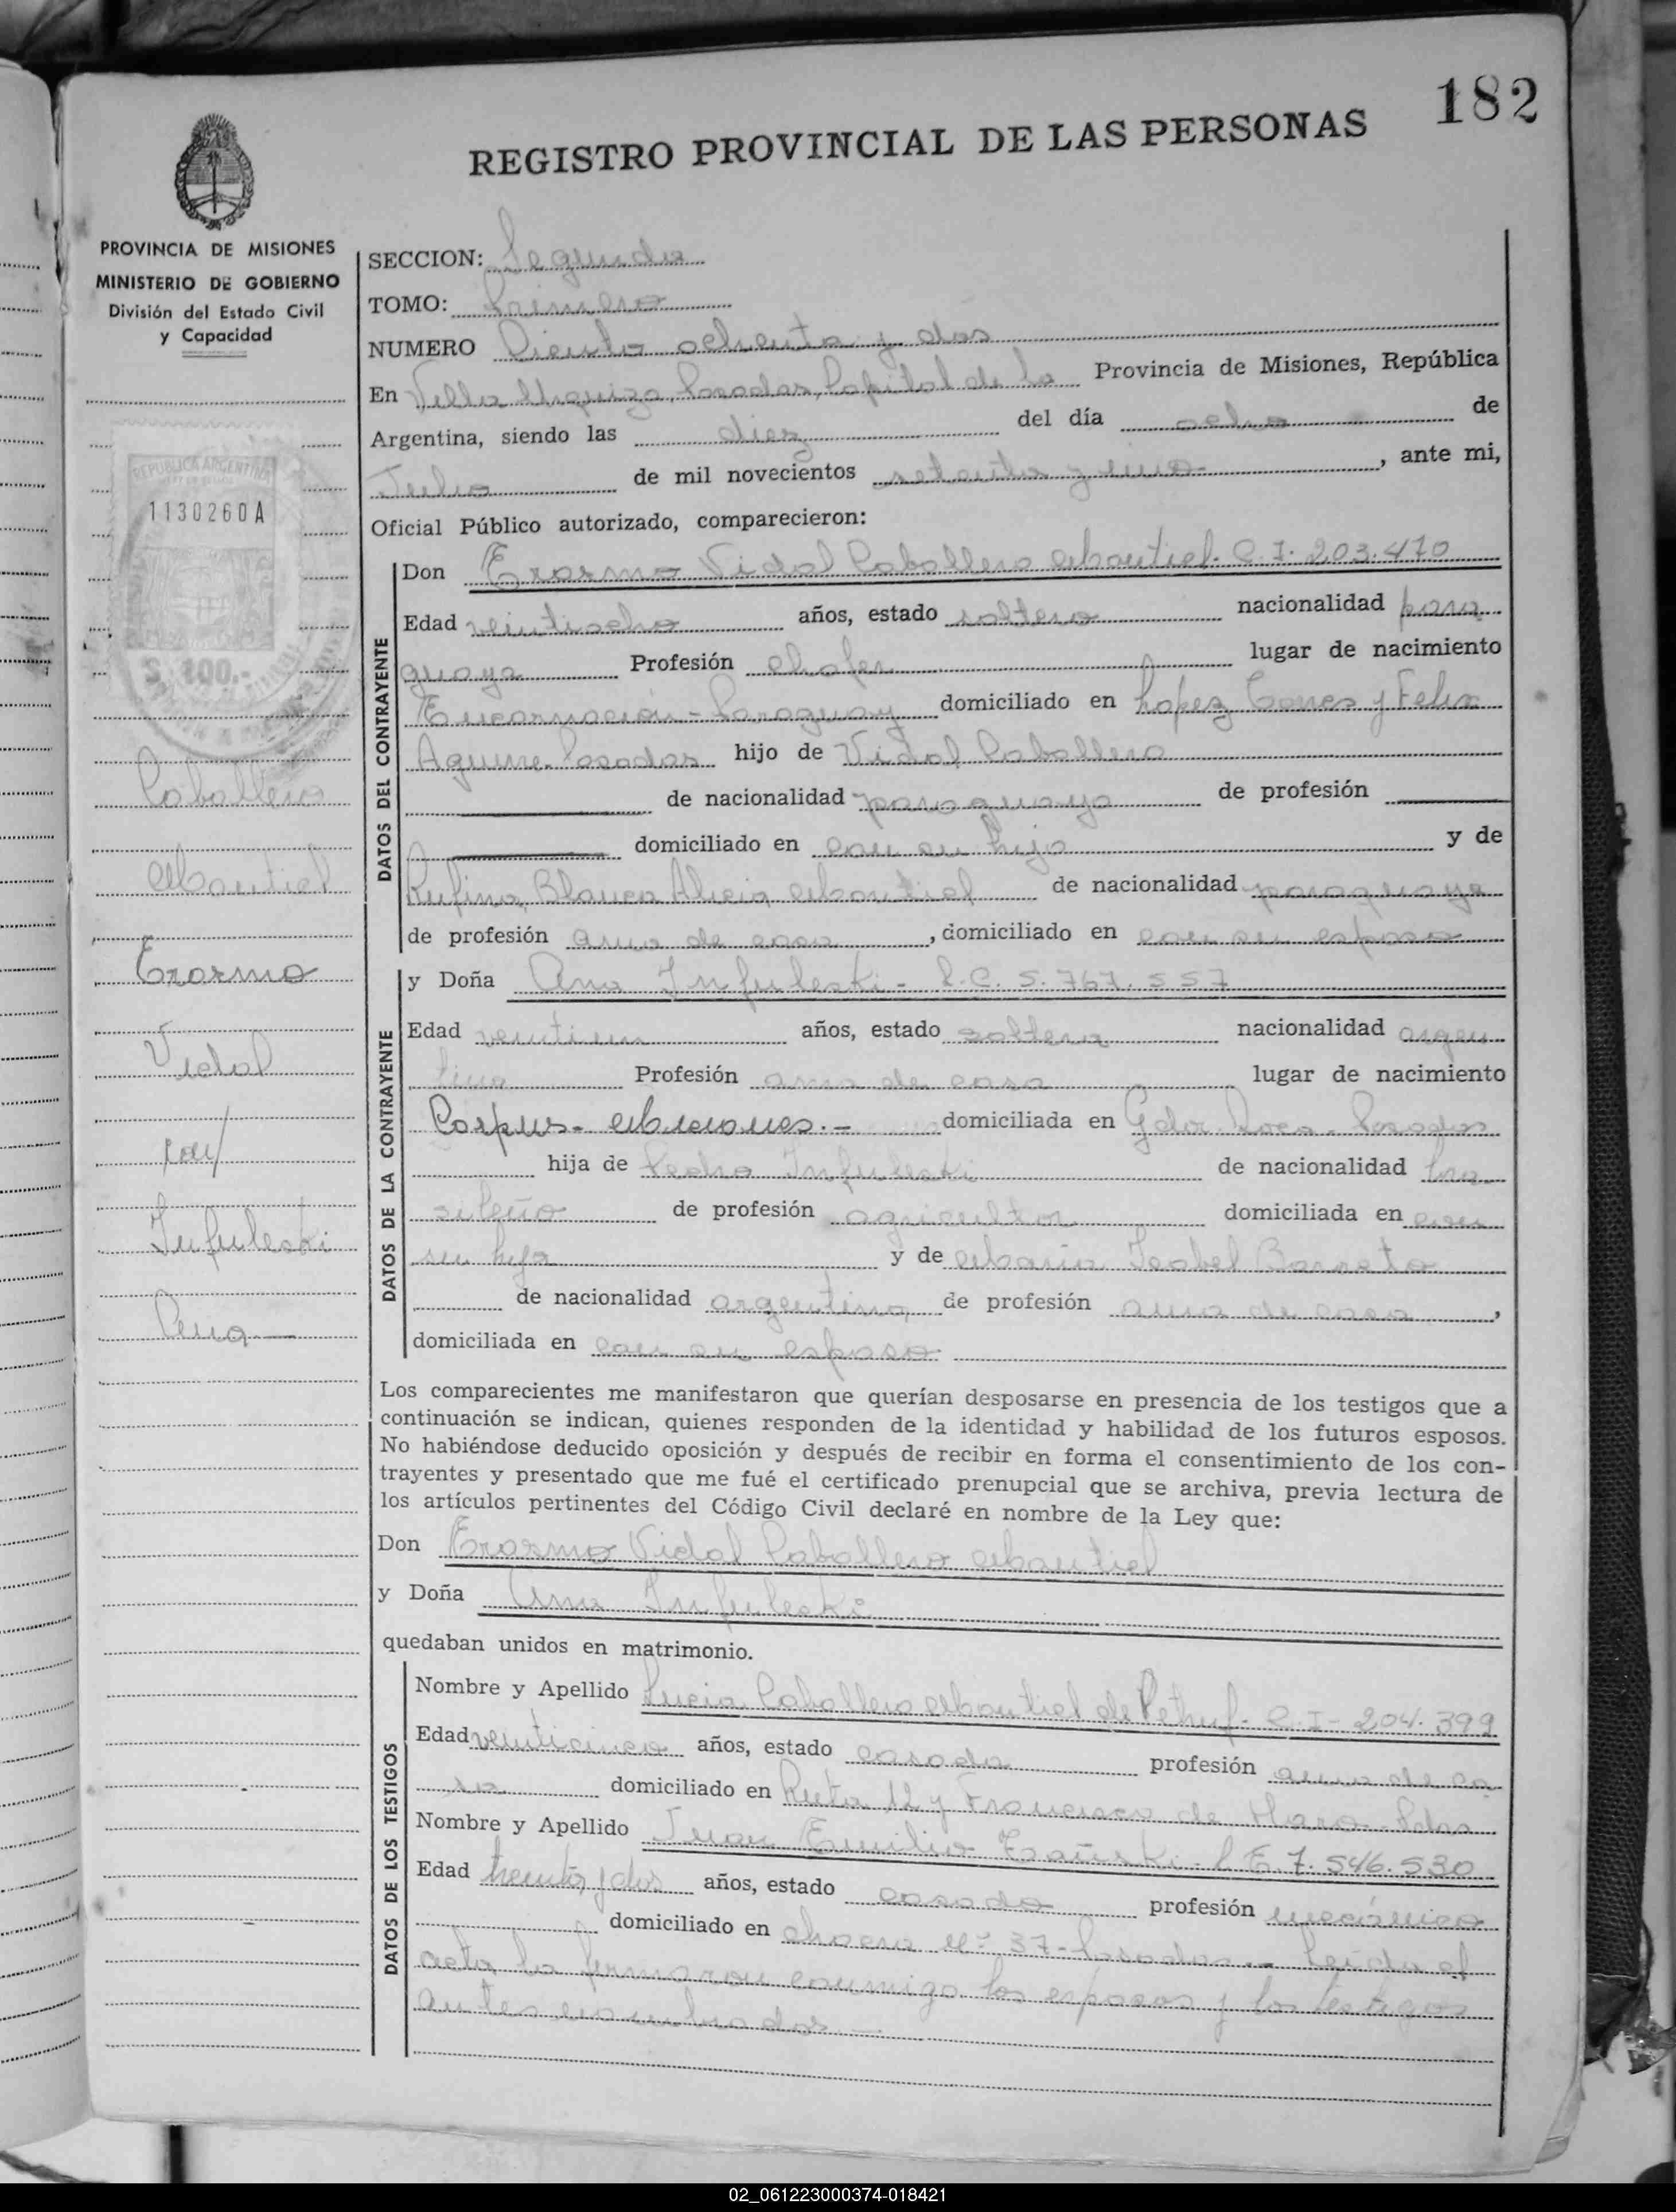 182
REGISTRO PROVINCIAL DE LAS PERSONAS
PROVINCIA DE MISIONES
MINISTERIO DE GOBIERNO
División del Estado Civil
y Capacidad
REPUBLICA ARGENTINA
1130260A
$ 100.-
Caballero
Montiel
Erasmo
Vidal
con/
Infuleski
Ana
SECCION: Segunda
TOMO: Primero
NUMERO Ciento ochenta y dos
En Villa Urquiza, Posadas, Capital de la Provincia de Misiones, República
Argentina, siendo las diez del día ocho de
Julio de mil novecientos setenta y uno, ante mi,
Oficial Público autorizado, comparecieron:
DATOS DEL CONTRAYENTE
Don Erasmo Vidal Caballero Montiel. C.I. 203.470
Edad veintiocho años, estado soltero nacionalidad para
guaya Profesión chofer lugar de nacimiento
Encarnación - Paraguay domiciliado en Lopez Torres y Felix
Aguirre. Posadas hijo de Vidal Caballero
de nacionalidad paraguaya de profesión
domiciliado en con su hijo y de
Rufina Blanca Alicia Montiel de nacionalidad paraguaya
de profesión ama de casa, domiciliado en con su esposo
DATOS DE LA CONTRAYENTE
y Doña Ana Infuleski - L.C. 5.767.557
Edad veintiun años, estado soltera nacionalidad argen
tina Profesión ama de casa lugar de nacimiento
Corpus - Misiones.- domiciliada en Gdor. Roca - Posadas
hija de Pedro Infuleski de nacionalidad bra
sileño de profesión agricultor domiciliada en con
su hija y de Maria Isabel Barreto
de nacionalidad argentina, de profesión ama de casa,
domiciliada en con su esposo
Los comparecientes me manifestaron que querían desposarse en presencia de los testigos que a
continuación se indican, quienes responden de la identidad y habilidad de los futuros esposos.
No habiéndose deducido oposición y después de recibir en forma el consentimiento de los con-
trayentes y presentado que me fué el certificado prenupcial que se archiva, previa lectura de
los artículos pertinentes del Código Civil declaré en nombre de la Ley que:
Don Erasmo Vidal Caballero Montiel
y Doña Ana Infuleski
quedaban unidos en matrimonio.
DATOS DE LOS TESTIGOS
Nombre y Apellido Lucia Caballero Montiel de C.I - 204.399
Edad veinticinco años, estado casada profesión ama de ca
sa domiciliado en Ruta 12 y Francisco de Haro - Pdas
Nombre y Apellido Juan Emilio L.E. 7.546.530
Edad treinta y dos años, estado casado profesión mecánico
domiciliado en chacra Nº 37 - Posadas.- Leida el
acta la firmaron conmigo los esposos y los testigos
antes nombrados.-
02_061223000374-018421